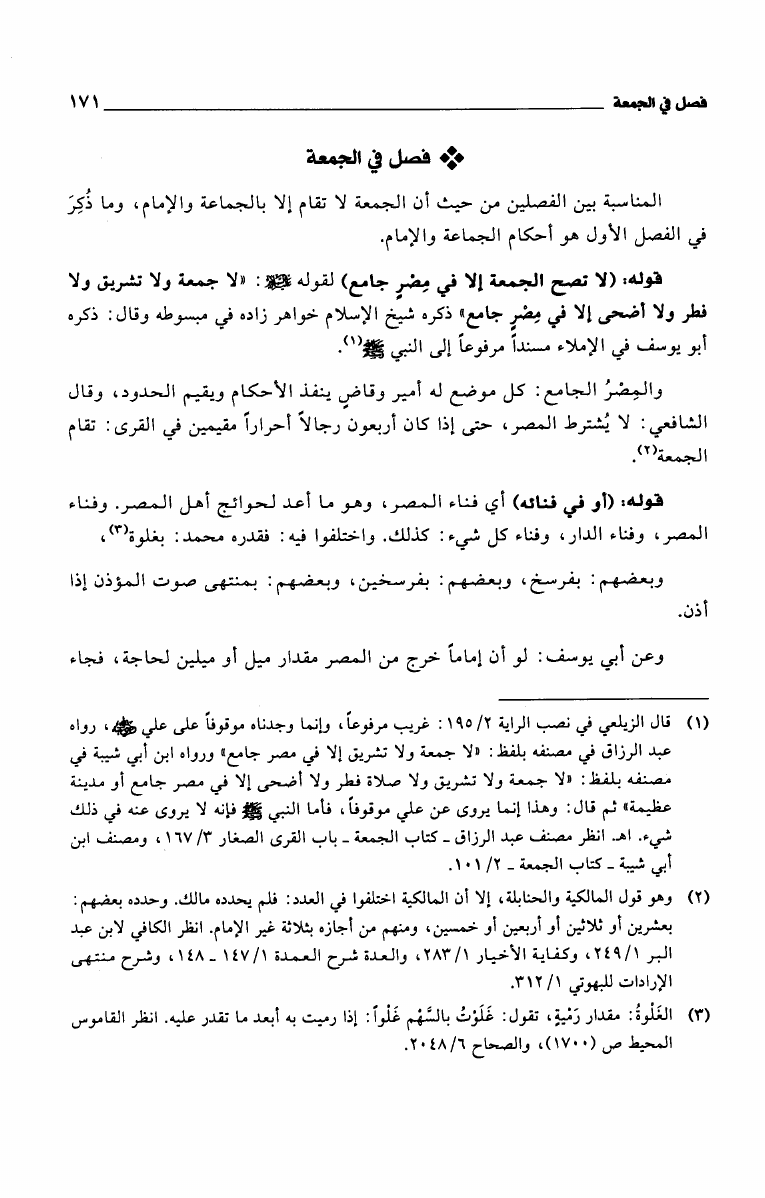 فصل في الجمعة ١٧١
❖ فصل في الجمعة
المناسبة بين الفصلين من حيث أن الجمعة لا تقام إلا بالجماعة والإمام، وما ذُكِرَ
في الفصل الأول هو أحكام الجماعة والإمام.
قوله: (لا تصح الجمعة إلا في مِصْرٍ جامع) لقوله ﷺ: «لا جمعة ولا تشريق ولا
فطر ولا أضحى إلا في مِصْرٍ جامع» ذكره شيخ الإسلام خواهر زاده في مبسوطه وقال: ذكره
أبو يوسف في الإملاء مسنداً مرفوعاً إلى النبي ﷺ(١).
والمِصْرُ الجامع: كل موضع له أمير وقاضٍ ينفذ الأحكام ويقيم الحدود، وقال
الشافعي: لا يُشترط المصر، حتى إذا كان أربعون رجالاً أحراراً مقيمين في القرى: تقام
الجمعة(٢).
قوله: (أو في فنائه) أي فناء المصر، وهو ما أعد لحوائج أهل المصر. وفناء
المصر، وفناء الدار، وفناء كل شيء: كذلك. واختلفوا فيه: فقدره محمد: بغلوة(٣)،
وبعضهم: بفرسخ، وبعضهم: بفرسخين، وبعضهم: بمنتهى صوت المؤذن إذا
أذن.
وعن أبي يوسف: لو أن إماماً خرج من المصر مقدار ميل أو ميلين لحاجة، فجاء
(١) قال الزيلعي في نصب الراية ١٩٥/٢: غريب مرفوعاً، وإنما وجدناه موقوفاً على علي رضي الله عنه، رواه
عبد الرزاق في مصنفه بلفظ: «لا جمعة ولا تشريق إلا في مصر جامع» ورواه ابن أبي شيبة في
مصنفه بلفظ: «لا جمعة ولا تشريق ولا صلاة فطر ولا أضحى إلا في مصر جامع أو مدينة
عظيمة» ثم قال: وهذا إنما يروى عن علي موقوفاً، فأما النبي ﷺ فإنه لا يروى عنه في ذلك
شيء. اهـ. انظر مصنف عبد الرزاق ـ كتاب الجمعة ـ باب القرى الصغار ١٦٧/٣، ومصنف ابن
أبي شيبة ـ كتاب الجمعة ـ ١٠١/٢.
(٢) وهو قول المالكية والحنابلة، إلا أن المالكية اختلفوا في العدد: فلم يحدده مالك. وحدده بعضهم:
بعشرين أو ثلاثين أو أربعين أو خمسين، ومنهم من أجازه بثلاثة غير الإمام. انظر الكافي لابن عبد
البر ٢٤٩/١، وكفاية الأخيار ٢٨٣/١، والعدة شرح العمدة ١٤٧/١ ـ ١٤٨، وشرح منتهى
الإرادات للبهوتي ٣١٢/١.
(٣) الغَلْوةُ: مقدار رَمْيةٍ، تقول: غَلَوْتُ بالسَّهْم غَلْواً: إذا رميت به أبعد ما تقدر عليه. انظر القاموس
المحيط ص (١٧٠٠)، والصحاح ٢٠٤٨/٦.